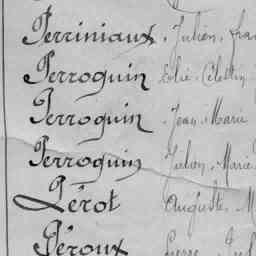 Perriniaux, Julien, fran
Perroquin Eolie Célestin
Perroquin, Jean Marie
Perroquin, Julien, Marie
Pérot Auguste M
Péroux Pierre Jul